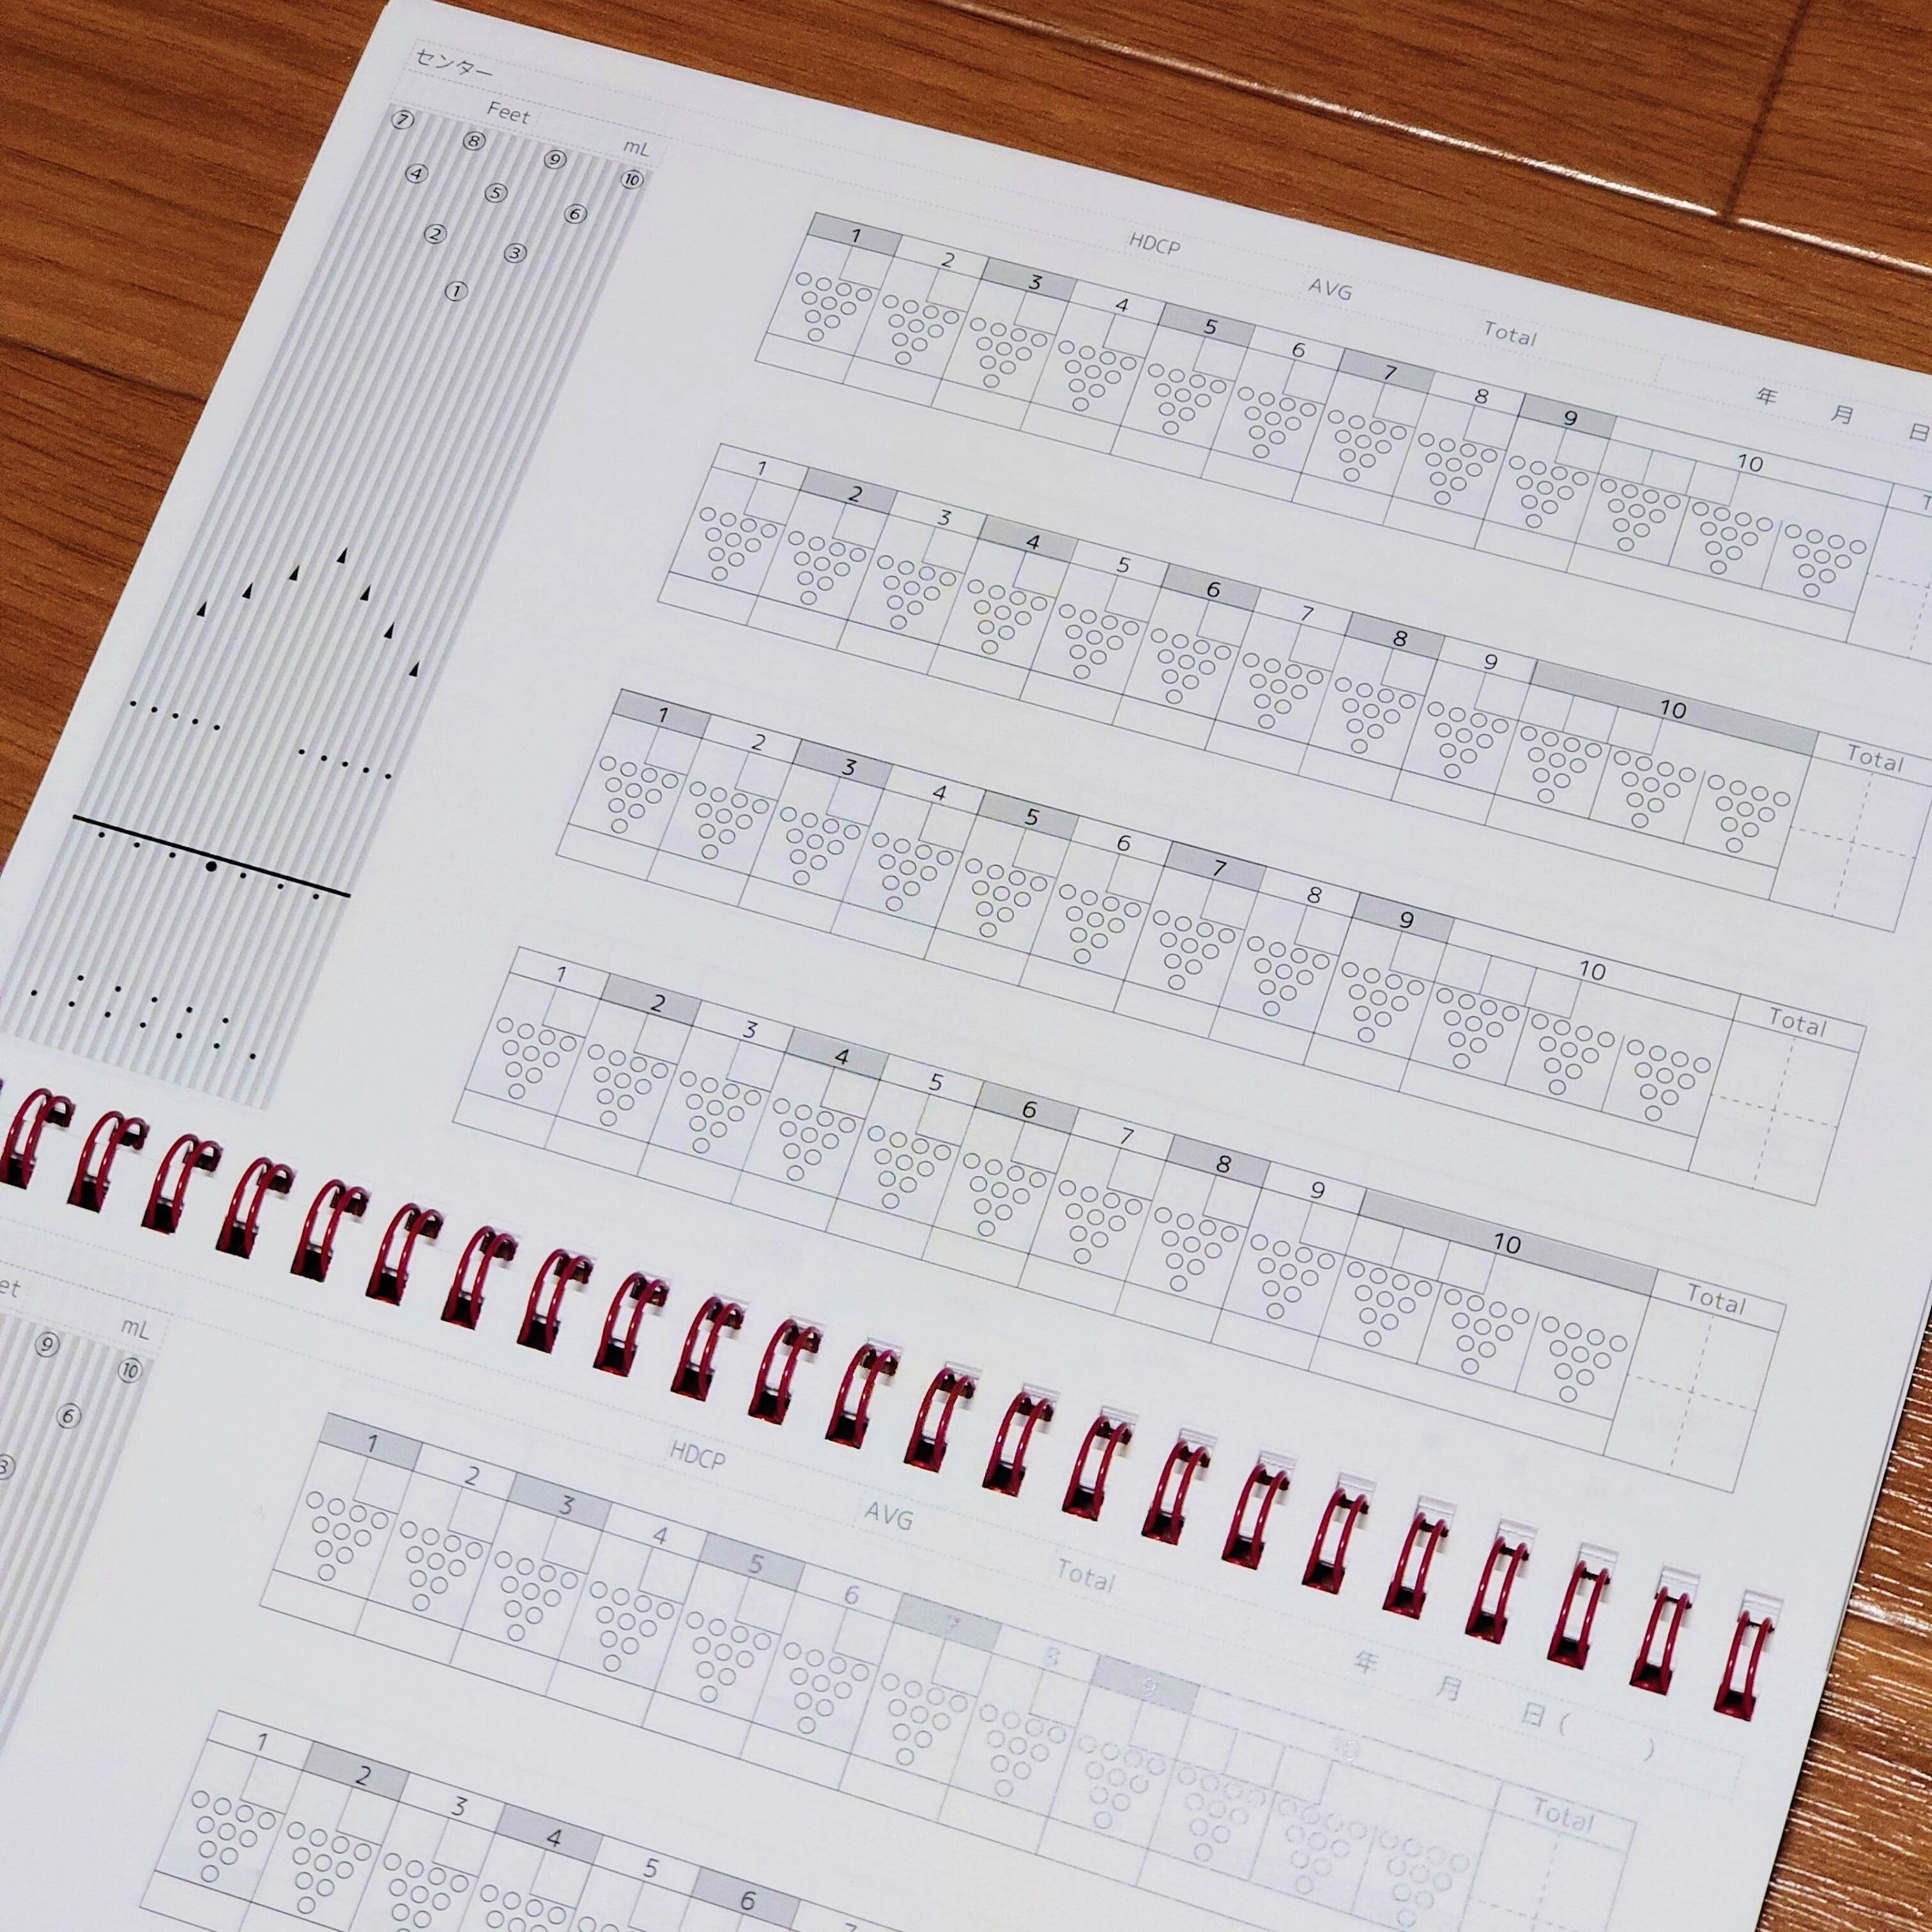 センター
Feet mL
⑦ ⑧ ⑨ ⑩
④ ⑤ ⑥
② ③
①
HDCP AVG Total 年 月 日
1 2 3 4 5 6 7 8 9 10
1 2 3 4 5 6 7 8 9 10 Total
1 2 3 4 5 6 7 8 9 10 Total
1 2 3 4 5 6 7 8 9 10 Total
et mL
⑨ ⑩
⑥
HDCP AVG Total 年 月 日 ( )
1 2 3 4 5 6 7 8 9 10 Total
1 2 3 4 5 6